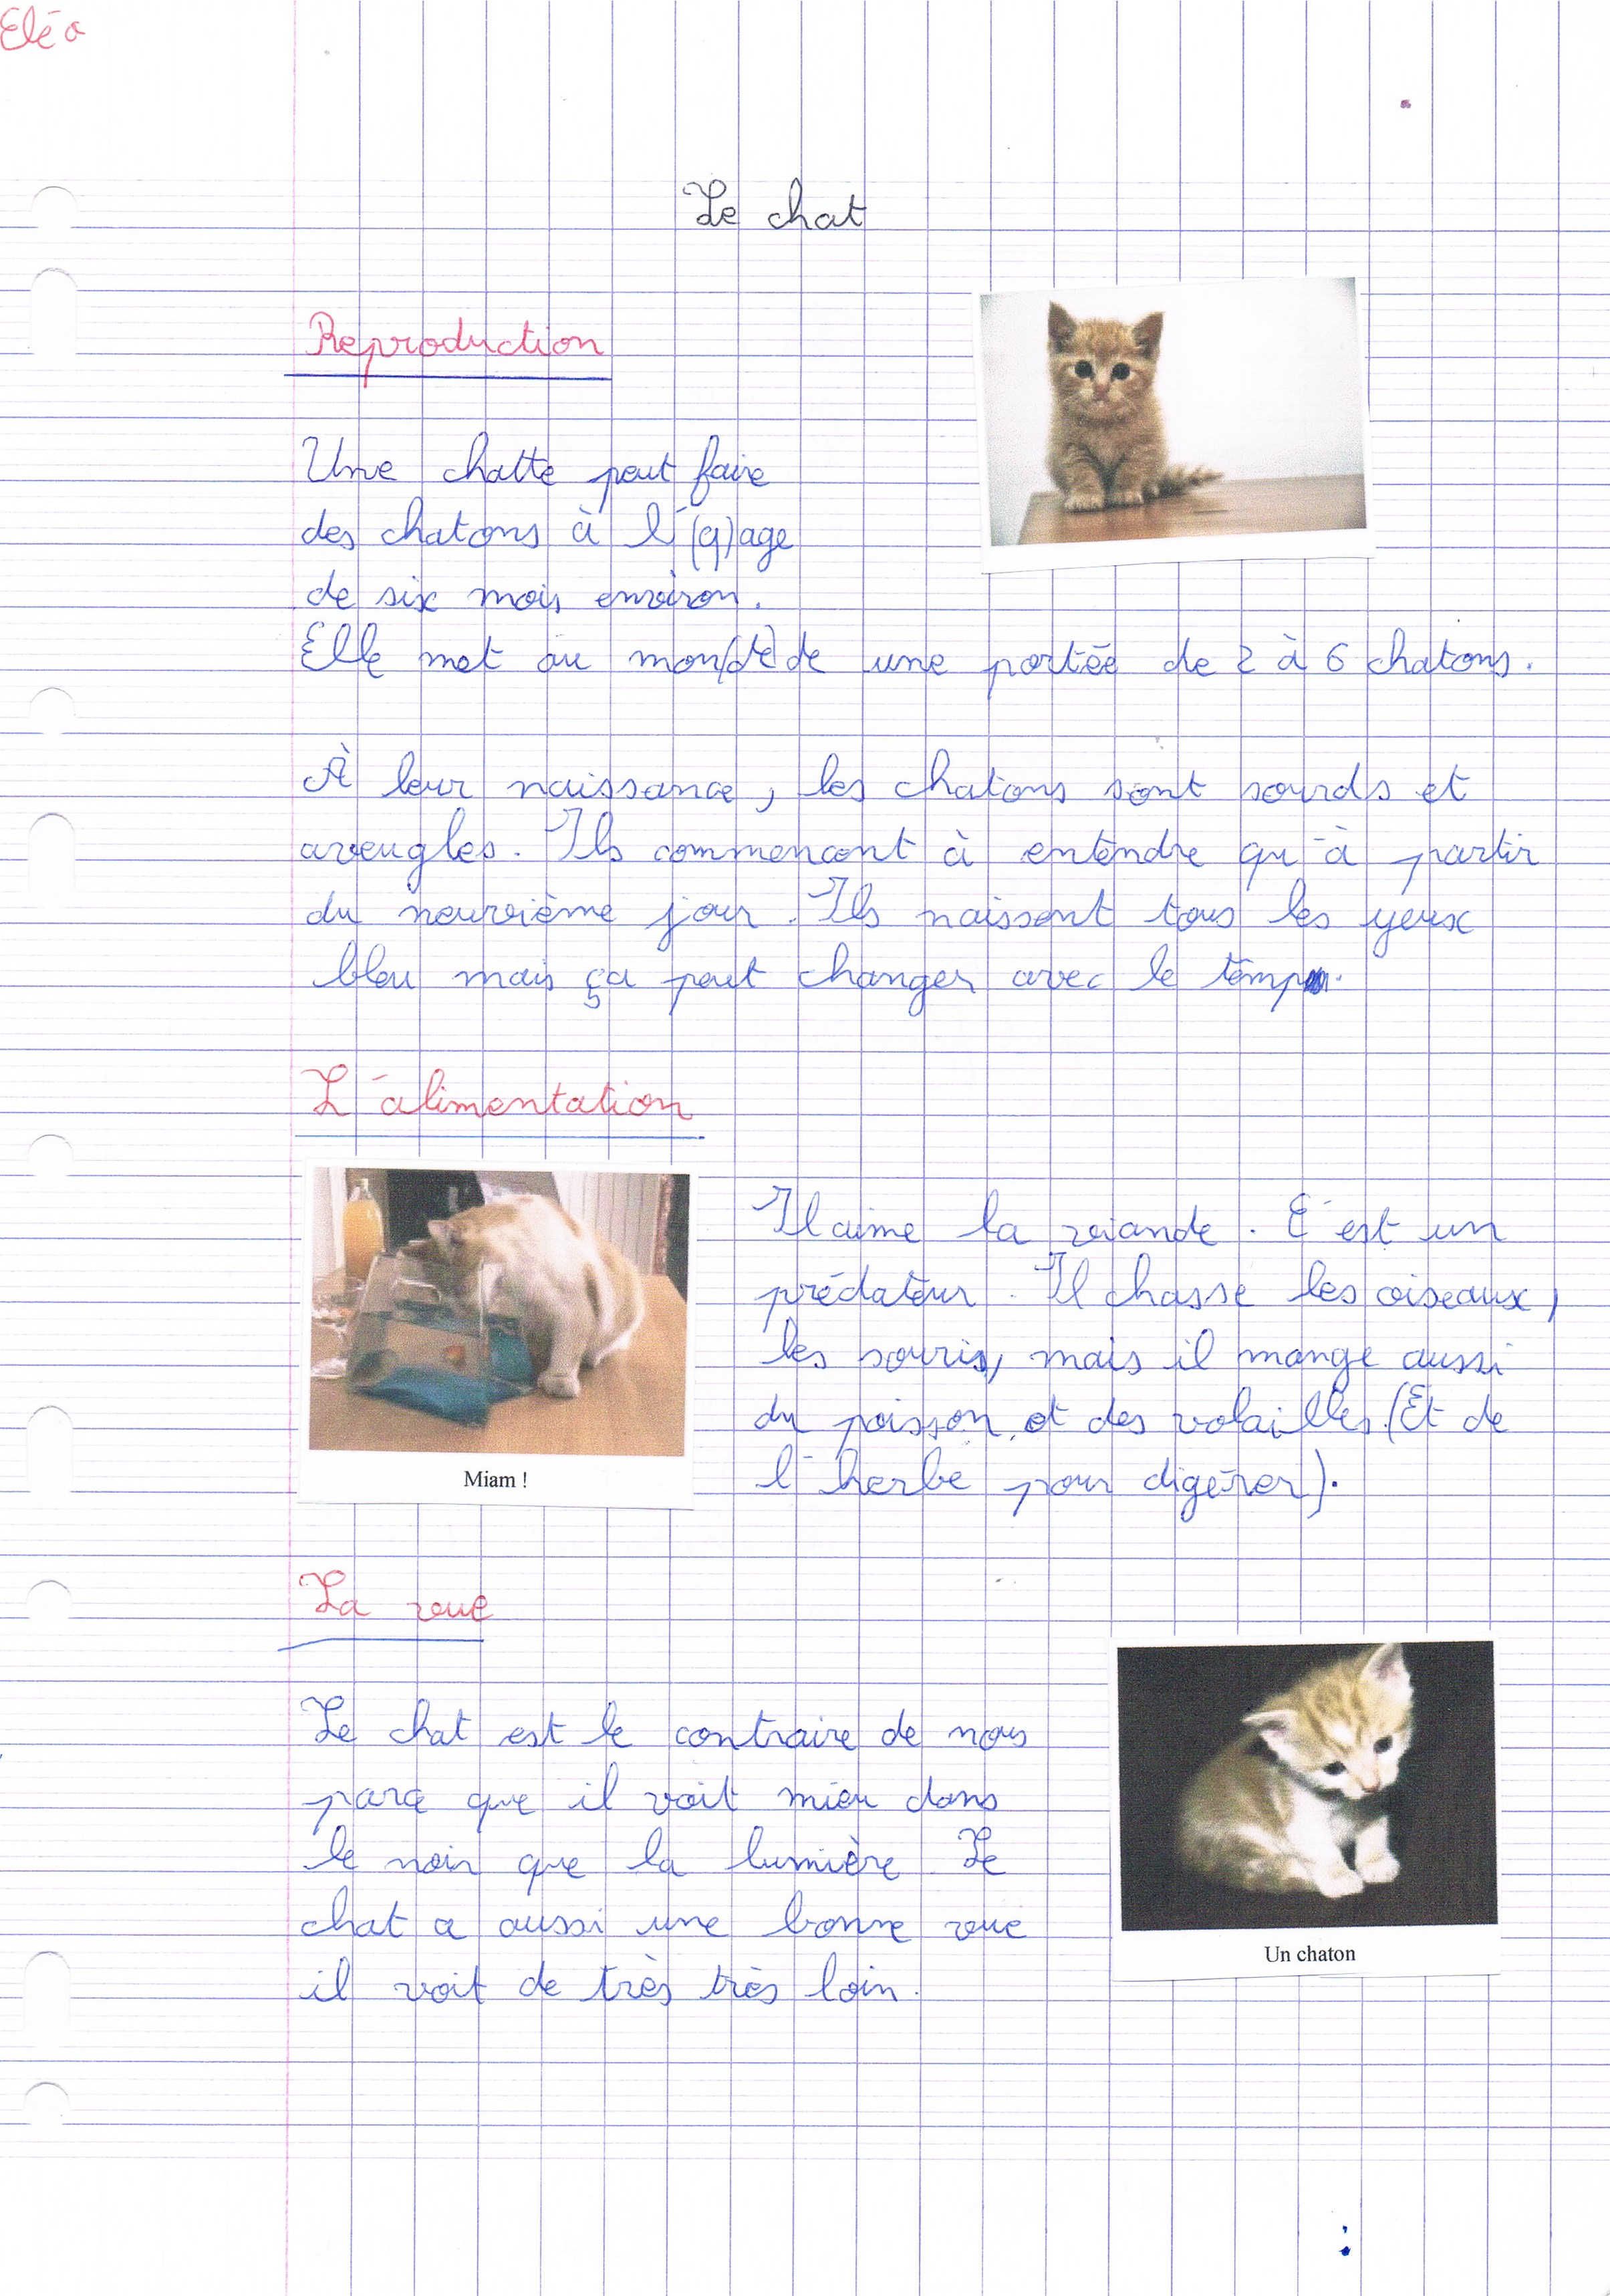 Eléa
Le chat
Reproduction
Une chatte peut faire
des chatons à l'(g)age
de six mois environ.
Elle met au mon(de)de une portée de 2 à 6 chatons.
À leur naissance, les chatons sont sourds et
aveugles. Ils commencent à entendre qu'à partir
du neuvième jour. Ils naissent tous les yeux
bleu mais ça peut changer avec le temp.
L'alimentation
Il aime la viande. C'est un
prédateur. Il chasse les oiseaux,
les souris, mais il mange aussi
du poisson et des volailles. (Et de
l'herbe pour digérer).
Miam !
La vue
Le chat est le contraire de nous
parce que il voit mieu dans
le noir que la lumière Le
chat a aussi une bonne vue
il voit de très très loin.
Un chaton